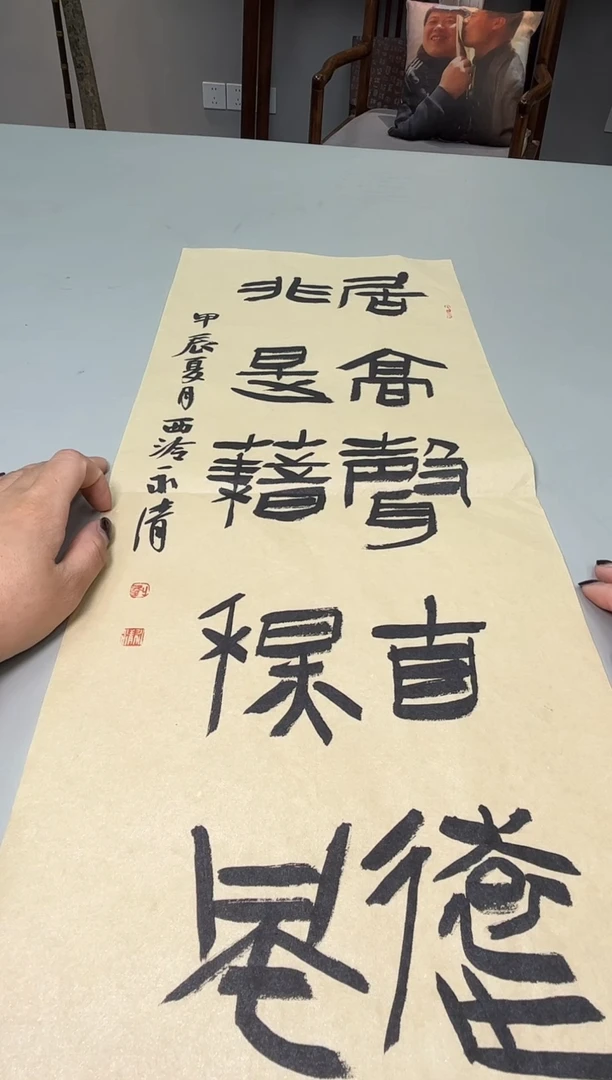 居高聲自遠
非是藉秋風
甲辰夏月西泠永清